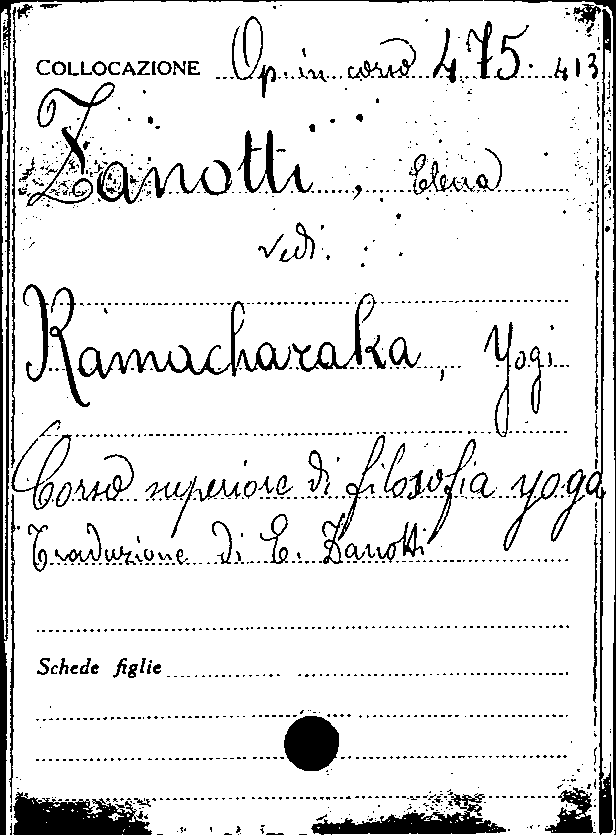 COLLOCAZIONE Op. in corso 475. 413
Zanotti, Elena
vedi.
Ramacharaka, Yogi
Corso superiore di filosofia yoga
Traduzione di E. Zanotti
Schede figlie